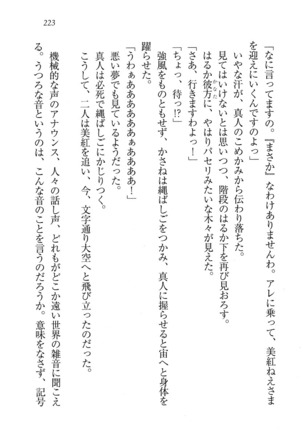 223
「なに言ってますの。『まさか』なわけありませんわ。アレに乗って、美紅ねえさま
を迎えにいくんですのよっ」
いやな汗が、真人のこめかみから伝わり落ちた。
見てはいけないとは思いつつ、階段のはるか下を再び見おろす。
はるか彼方に、やはりパセリみたいな木々が見えた。
「さあ、行きますわよっ！」
「ちょっ、待っ!?」
強風をものともせず、かさねは縄ばしごをつかみ、真人に握らせると宙へと身体を
躍らせた。
「うわぁあああああぁぁああああ！」
悪い夢でも見ているようだった。
真人は必死で縄ばしごにかじりつく。
こうして、二人は美紅を追い、今、文字通り大空へと飛び立ったのだった。
機械的な声のアナウンス、人々の話し声、どれもがどこか遠い世界の雑音に聞こえ
る。うつろな音というのは、こんな音のことを言うのだろうか。意味をなさず、記号